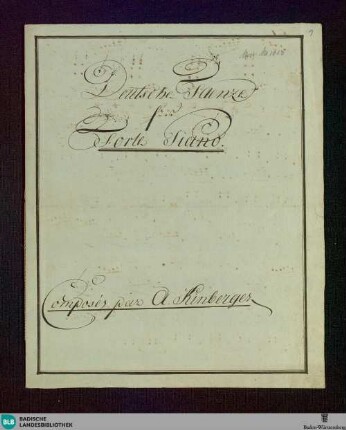 Deutsche Taenze
für
Forte Piano.
Composés par A Kinberger
BLB
BADISCHE
LANDESBIBLIOTHEK
Baden-Württemberg